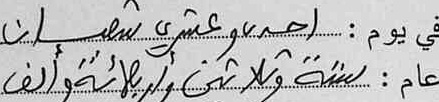 في يوم : احدى وعشري شعبان
عام : ستة وثلاثين وأربعمائة وألف